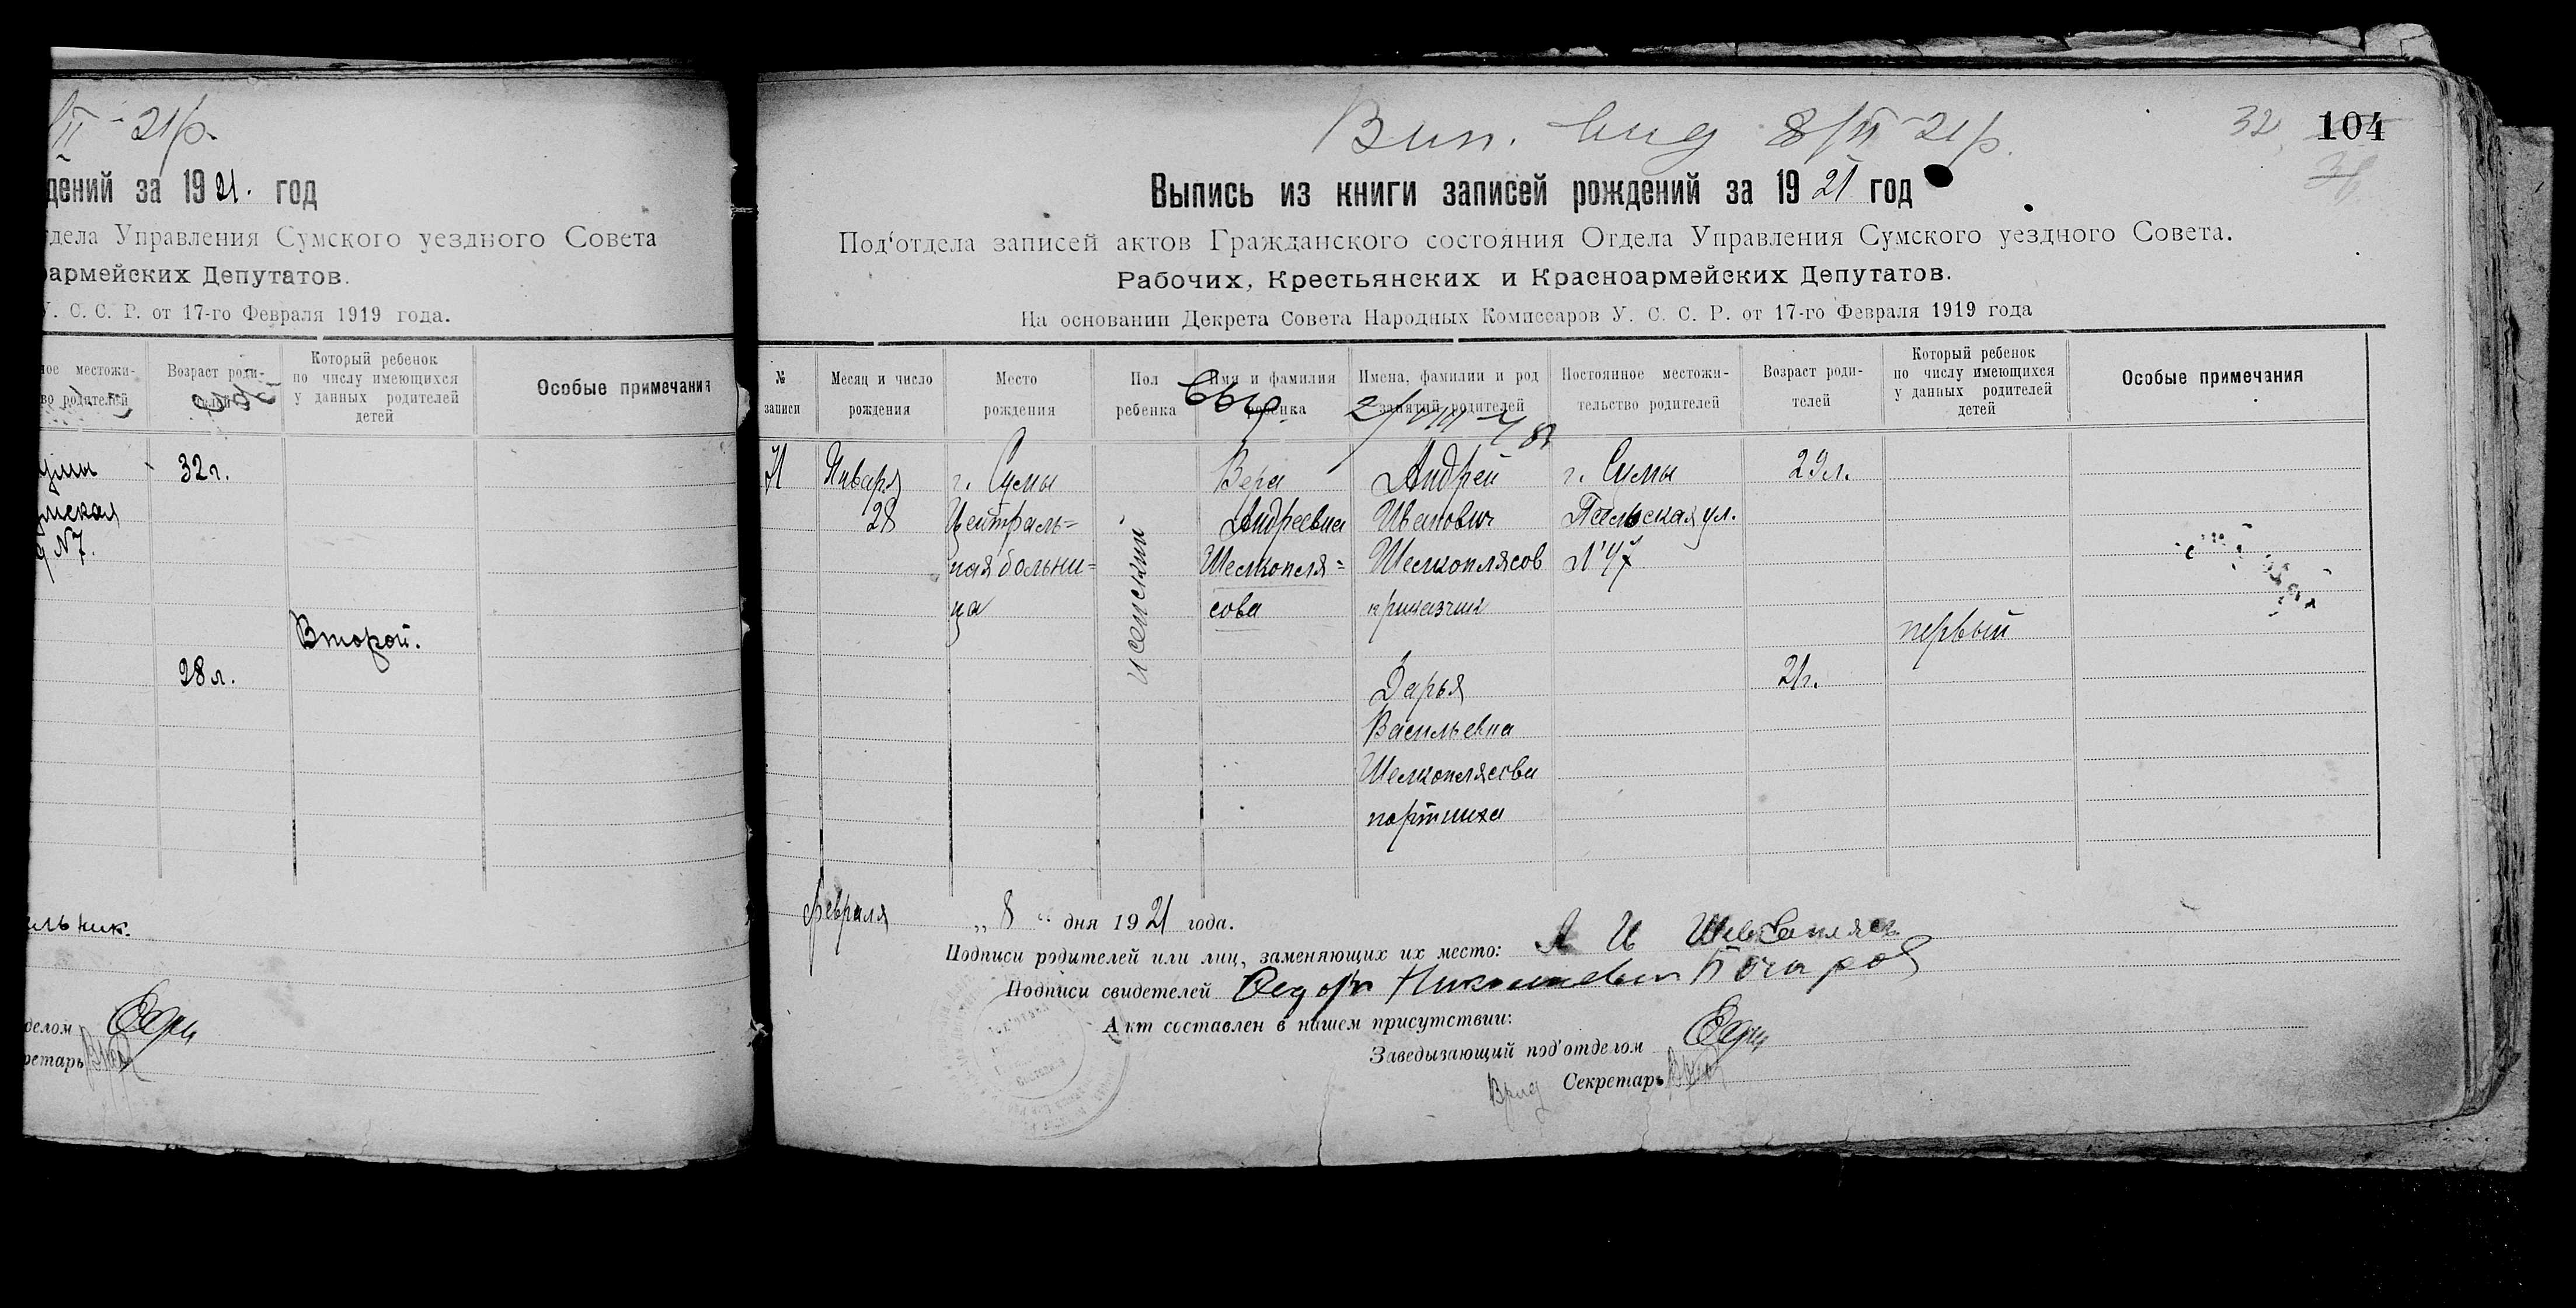 II - 21р.
дений за 1921. год
тдела Управления Сумского уездного Совета
оармейских Депутатов.
У. С. С. Р. от 17-го Февраля 1919 года.
ное местожи-
во родителей
Возраст роди-
телей
Который ребенок
по числу имеющихся
у данных родителей
детей
Особые примечания
32г.
N7.
Второй.
28л.
льник.
делом
ретарь
Вип. вид 8/II 21р.
32
104
Выпись из книги записей рождений за 1921 год
Под‘отдела записей актов Гражданского состояния Отдела Управления Сумского уездного Совета.
Рабочих, Крестьянских и Красноармейских Депутатов.
На основании Декрета Совета Народных Комиссаров У. С. С. Р. от 17-го Февраля 1919 года
№
записи
Месяц и число
рождения
Место
рождения
Пол
ребенка
Имя и фамилия
ребенка
Имена, фамилии и род
занятий родителей
Постоянное местожи-
тельство родителей
Возраст роди-
телей
Который ребенок
по числу имеющихся
у данных родителей
детей
Особые примечания
Января
28
г. Сумы
Централь=
ная больни=
ца
женский
Вера
Андреевна
Шелкопля=
сова
Андрей
Иванович
Шелкоплясов
приказчик
Дарья
Васильевна
Шелкоплясова
портниха
г. Сумы
Псельская ул.
№47
29л.
21г.
первый
февраля „ 8 “ дня 1921 года.
Подписи родителей или лиц, заменяющих их место: А И
Подписи свидетелей Федор Николаевич Бочаров
Акт составлен в нашем присутствии:
Заведызающий под‘отделом
Врид Секретарь